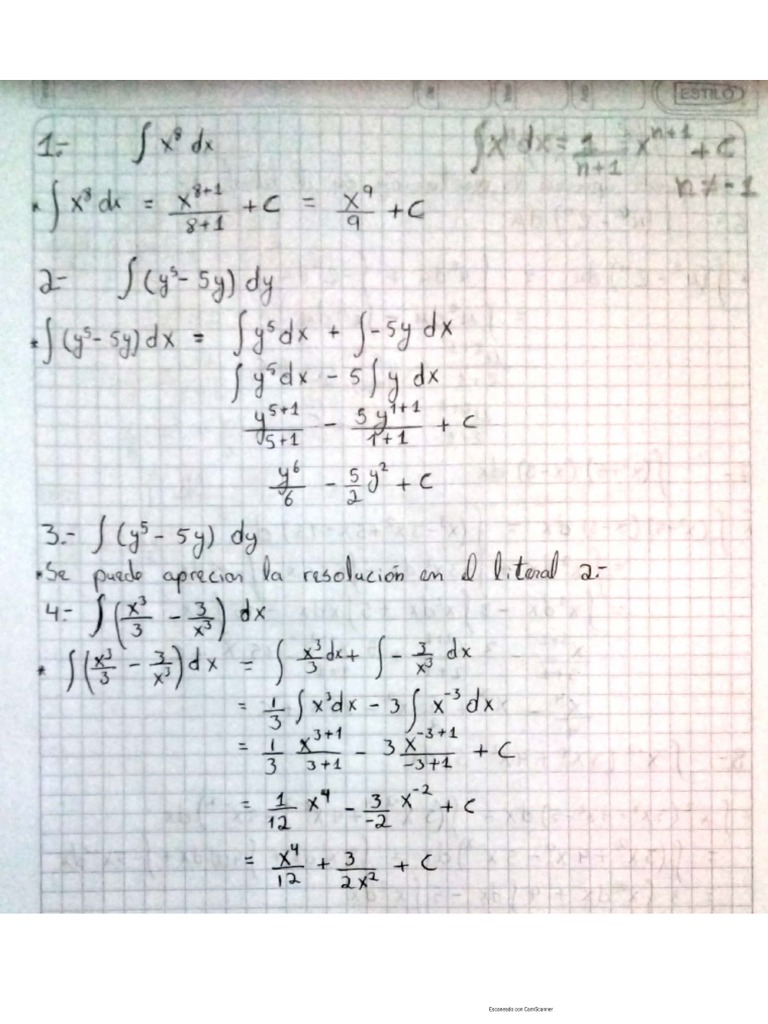 ESTILO
1.- ∫ x⁸ dx
∫ xⁿ dx = 1/(n+1) xⁿ⁺¹ + C
n ≠ -1
* ∫ x⁸ dx = x⁸⁺¹/(8+1) + C = x⁹/9 + C
2- ∫ (y⁵ - 5y) dy
* ∫ (y⁵ - 5y) dx = ∫ y⁵ dx + ∫ -5y dx
∫ y⁵ dx - 5 ∫ y dx
y⁵⁺¹/(5+1) - 5y¹⁺¹/(1+1) + C
y⁶/6 - 5/2 y² + C
3.- ∫ (y⁵ - 5y) dy
* Se puede apreciar la resolución en el literal 2.-
4.- ∫ (x³/3 - 3/x³) dx
* ∫ (x³/3 - 3/x³) dx = ∫ x³/3 dx + ∫ - 3/x³ dx
= 1/3 ∫ x³ dx - 3 ∫ x⁻³ dx
= 1/3 x³⁺¹/(3+1) - 3x⁻³⁺¹/(-3+1) + C
= 1/12 x⁴ - 3/-2 x⁻² + C
= x⁴/12 + 3/(2x²) + C
Escaneado con CamScanner